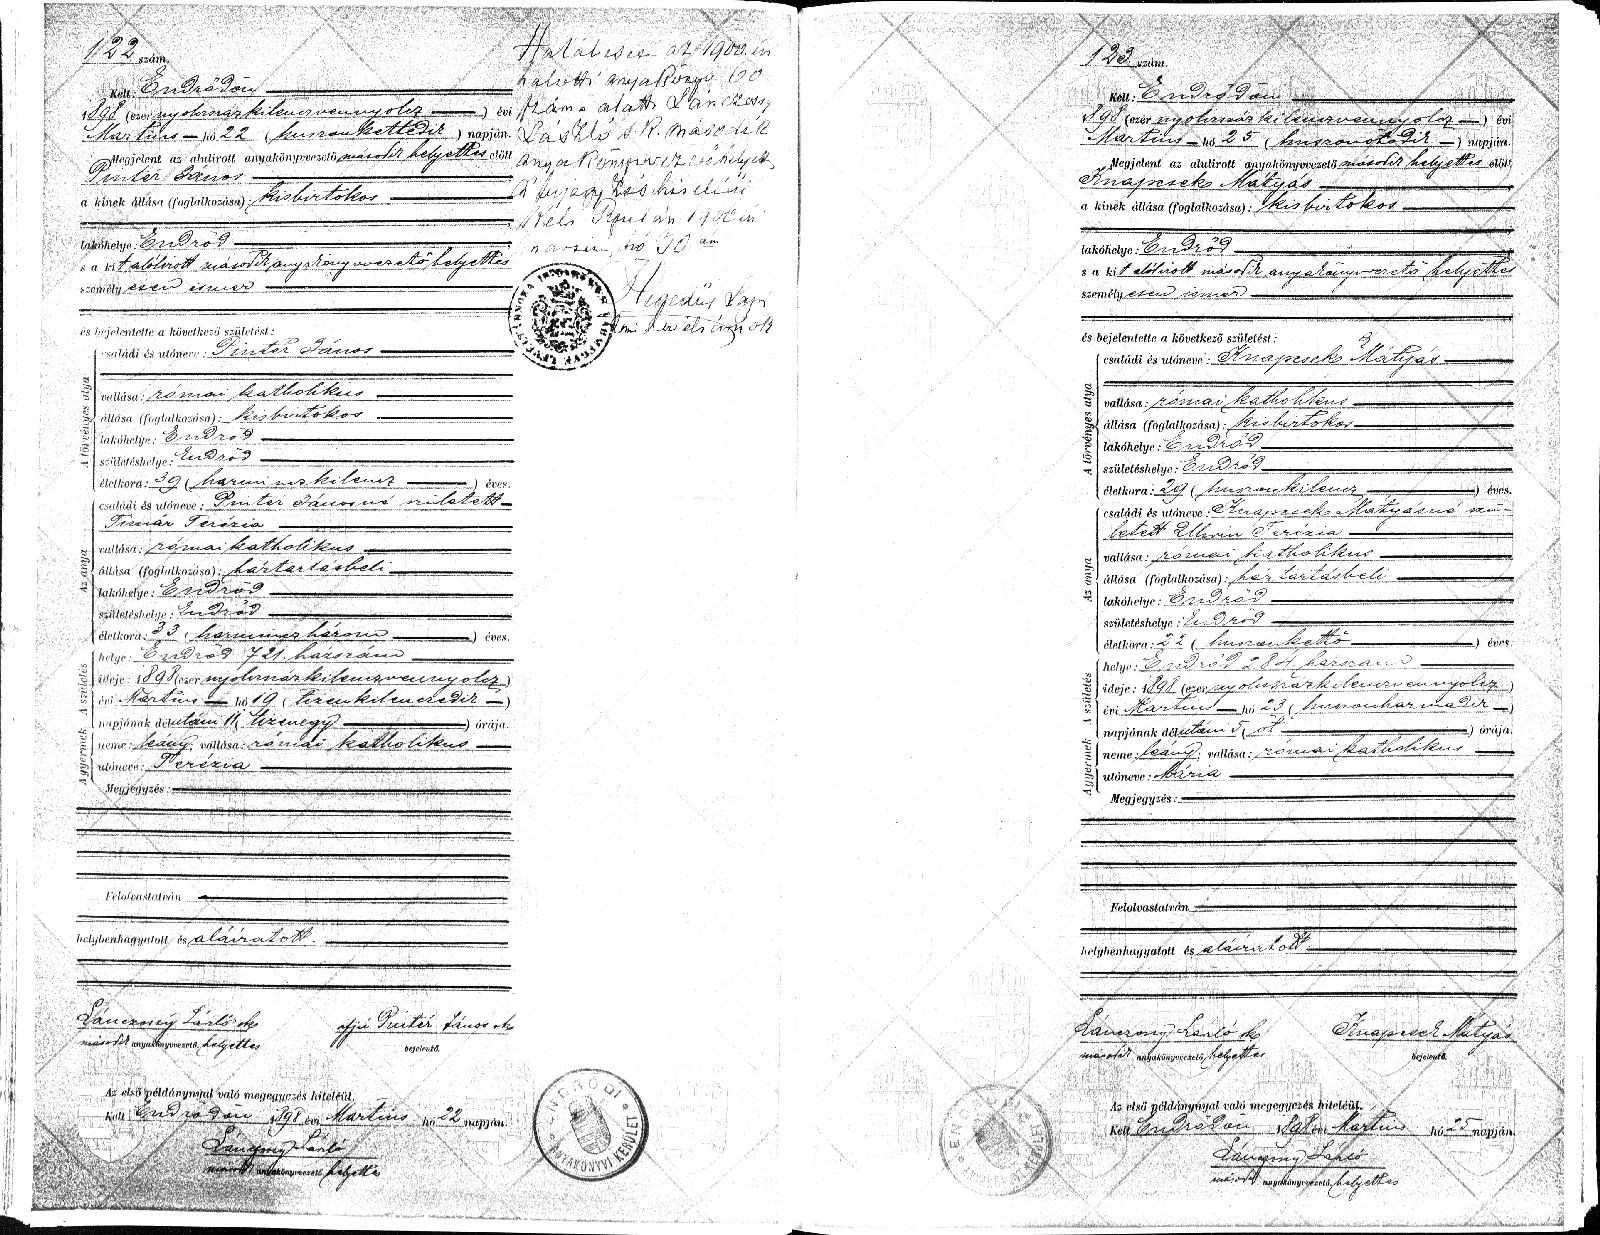 122 szám.
Kelt: Endrődön
1898 (ezer nyolczszázkilenczvennyolcz) évi
Martius hó 22 (huszonkettedik) napján.
Megjelent az alulirott anyakönyvvezető második helyettes előtt
Pintér János
a kinek állása (foglalkozása): kisbirtokos
lakóhelye: Endrőd
s a kit alólirott második anyakönyvvezető helyettes
személyesen ismer
és bejelentette a következő születést:
A törvényes atya
családi és utóneve: Pintér János
vallása: római katholikus
állása (foglalkozása): kisbirtokos
lakóhelye: Endrőd
születéshelye: Endrőd
életkora: 39 (harminczkilencz) éves.
Az anya
családi és utóneve: Pintér Jánosné született
Timár Terézia
vallása: római katholikus
állása (foglalkozása): háztartásbeli
lakóhelye: Endrőd
születéshelye: Endrőd
életkora: 33 (harminczhárom) éves.
A születés
helye: Endrőd 721. házszám
ideje: 1898 (ezer nyolczszázkilenczvennyolcz)
évi Martius hó 19 (tizenkilenczedik)
napjának délutáni 11 (tizenegy) órája.
A gyermek
neme: leány, vallása: római katholikus
utóneve: Terézia
Megjegyzés:
Felolvastatván
helybenhagyatott és aláiratott.
Lánczony László sk
második anyakönyvvezető helyettes
ifjú Pintér János sk
bejelentő.
Az első példánynyal való megegyezés hiteléül.
Kelt Endrődön 1898 évi Martius hó 22 napján.
Lánczony László
második anyakönyvvezető helyettes
ENDRŐDI ANYAKÖNYVI KERÜLET
az 1900. én
halotti anyakönyv 60
szám alatt Lánczony
László s. k. második
anyakönyvvezető helyett.
1900 én
hó 30 án
Hegedűs
123 szám.
Kelt: Endrődön
1898 (ezer nyolczszázkilenczvennyolcz) évi
Martius hó 25 (huszonötödik) napján.
Megjelent az alulirott anyakönyvvezető második helyettes előtt
Knapcsek Mátyás
a kinek állása (foglalkozása): kisbirtokos
lakóhelye: Endrőd
s a kit alólirott második anyakönyvvezető helyettes
személyesen ismer
és bejelentette a következő születést:
A törvényes atya
családi és utóneve: Knapcsek Mátyás
vallása: római katholikus
állása (foglalkozása): kisbirtokos
lakóhelye: Endrőd
születéshelye: Endrőd
életkora: 29 (huszonkilencz) éves.
Az anya
családi és utóneve: Knapcsek Mátyásné szü-
letett Terézia
vallása: római katholikus
állása (foglalkozása): háztartásbeli
lakóhelye: Endrőd
születéshelye: Endrőd
életkora: 22 (huszonkettő) éves.
A születés
helye: Endrőd 284 házszám
ideje: 1898 (ezer nyolczszázkilenczvennyolcz)
évi Martius hó 23 (huszonharmadik)
napjának délutáni 5 (öt) órája.
A gyermek
neme: leány, vallása: római katholikus
utóneve: Mária
Megjegyzés:
Felolvastatván
helybenhagyatott és aláiratott
Lánczony László sk
második anyakönyvvezető helyettes
Knapcsek Mátyás
bejelentő.
Az első példánynyal való megegyezés hiteléül.
Kelt Endrődön 1898 évi Martius hó 25 napján.
Lánczony László
második anyakönyvvezető helyettes